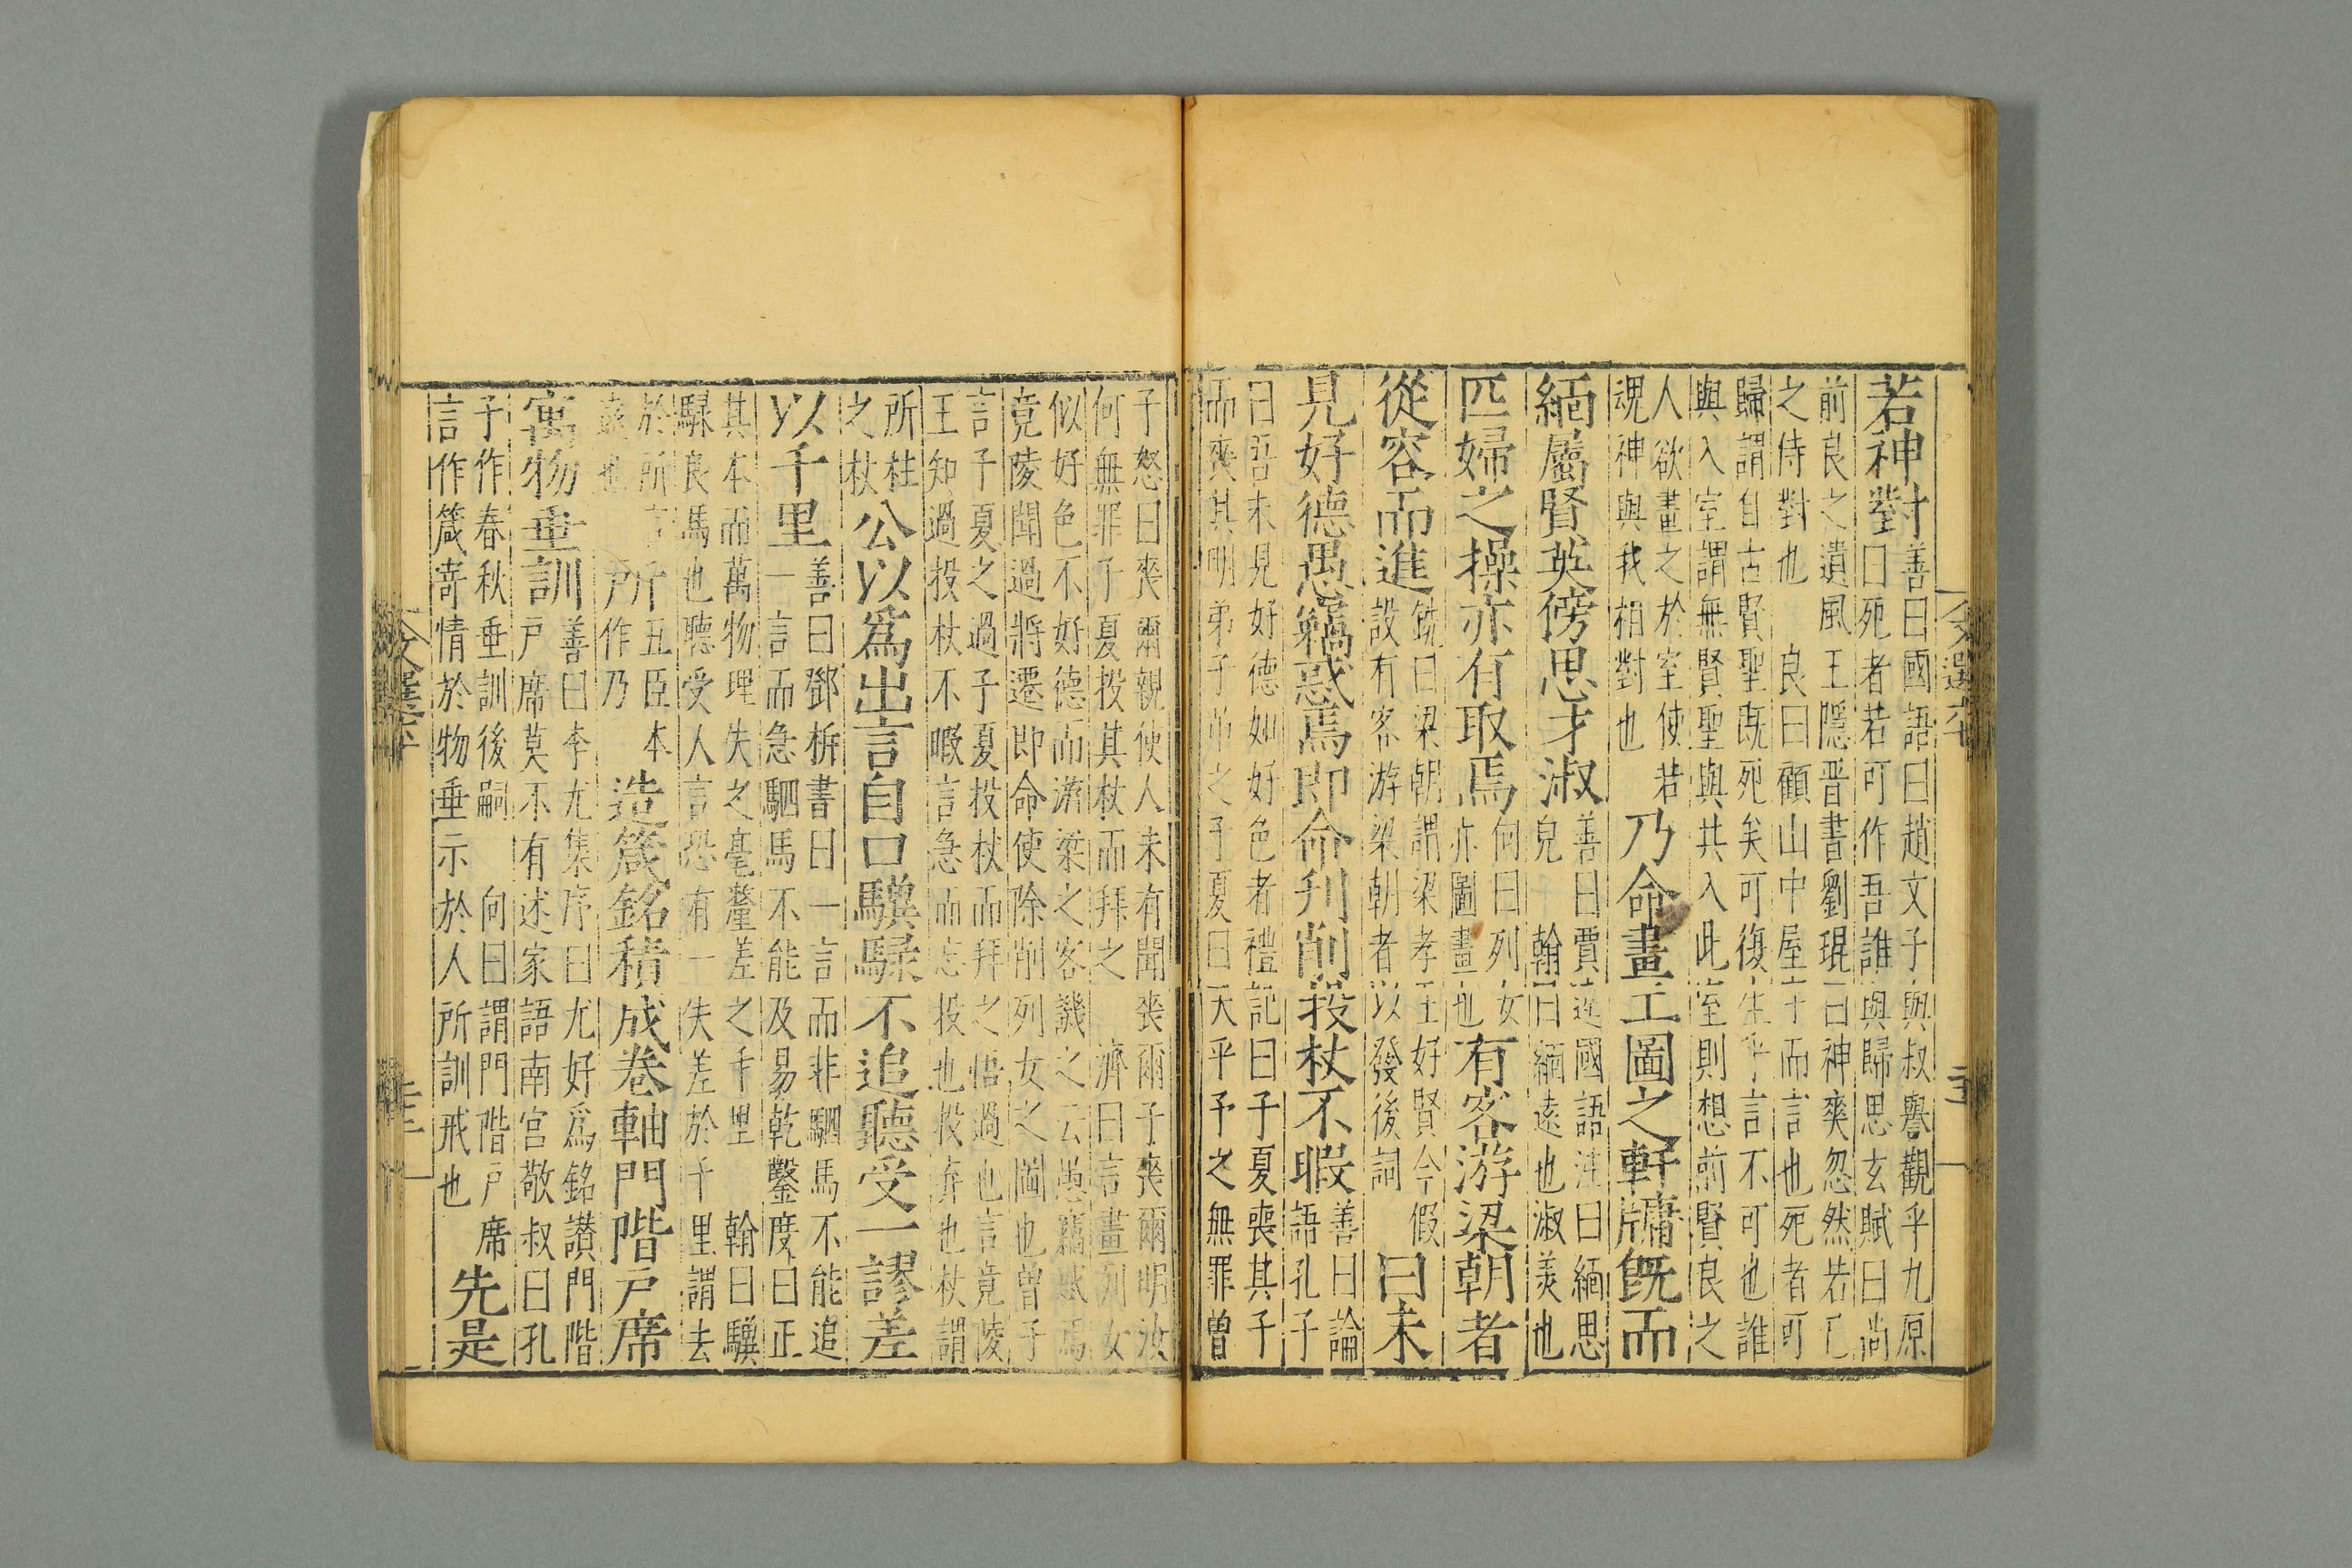 若神對善曰國語曰趙文子與叔譽觀乎九原
曰死者若可作吾誰與歸思玄賦曰尚
前良之遺風王隱晉書劉琨曰神爽忽然若已
之侍對也 良曰顧山中屋宇而言也死者可
歸謂自古賢聖旣死矣可復生乎言不可也誰
與入室謂無賢聖與共入此室則想前賢良之
人欲畫之於室使若
魂神與我相對也
乃命畫工圖之軒牖旣而
緬屬賢英傍思才淑善曰賈逵國語注曰緬思
皃 翰曰緬遠也淑美也
匹婦之操亦有取焉向曰列女
亦圖畫也
有客游梁朝者
從容而進銑曰梁朝謂梁孝王好賢今假
設有客游梁朝者以發後詞
曰未
見好德愚竊惑焉即命刋削投杖不暇善曰論
語孔子
曰吾未見好德如好色者禮記曰子夏喪其子
而喪其明弟子弔之子夏曰天乎予之無罪曾
子怒曰喪爾親使人未有聞喪爾子喪爾明汝
何無罪子夏投其杖而拜之 濟曰言畫列女
似好色不好德而游梁之客譏之云愚竊惑焉
竟陵聞過將遷即命使除削列女之圖也曾子
言子夏之過子夏投杖而拜之悟過也言竟陵
王知過投杖不暇言急而志投也投弃也杖謂
所柱
之杖
公以爲出言自口驥騄不追聽受一謬差
以千里善曰鄧析書曰一言而非駟馬不能追
一言而急駟馬不能及易乾鑿度曰正
其本而萬物理失之毫釐差之千里 翰曰驥
騄良馬也聽受人言恐有一失差於千里謂去
於所言
遠也
所五臣本
作乃
造箴銘積成卷軸門階戸席
寓物垂訓善曰李尤集序曰尤好爲銘讃門階
戸席莫不有述家語南宮敬叔曰孔
子作春秋垂訓後嗣 向曰謂門階戸席
言作箴寄情於物垂示於人所訓戒也
先是